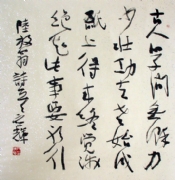 古人学问无遗力
少壮功夫老始成
纸上得来终觉浅
绝知此事要躬行
陆放翁诗